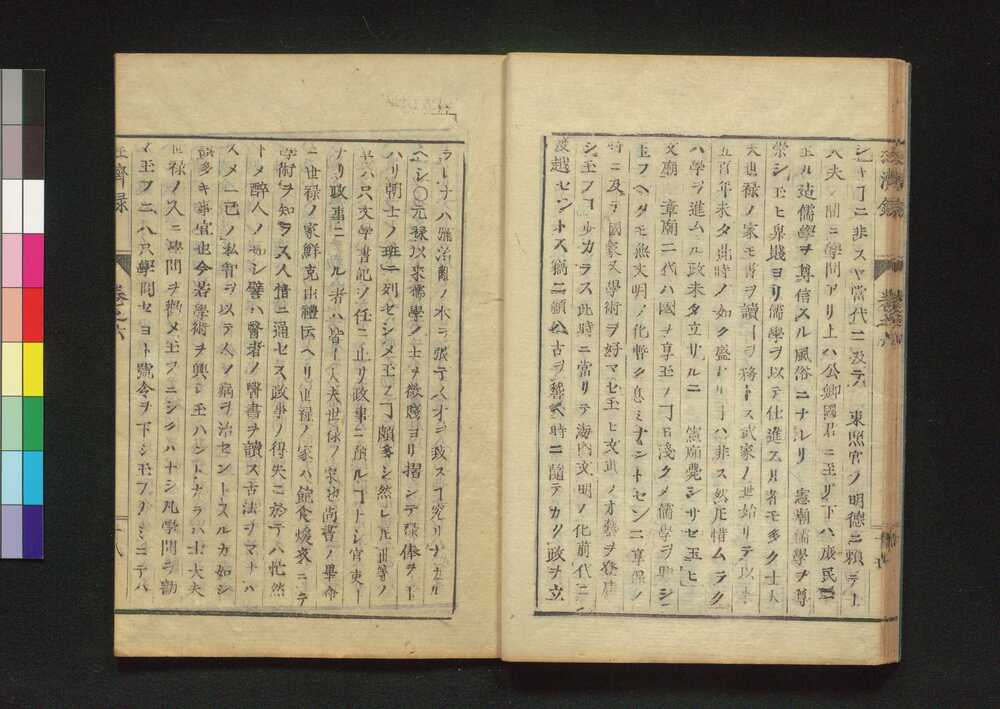 經濟錄
卷之六
シ玉キヿニ非スヤ當代ニ及テ 東照宮ノ明德ニ賴テ上
大夫ノ間ニ學問アリ上ハ公卿國君ニ至リ下ハ庶民ニ
至ル迄儒學ヲ尊信スル風俗ニナレリ 憲廟儒學ヲ尊
崇シ玉ヒ卑賤ヨリ儒學ヲ以テ仕進スル者モ多ク士大
夫世祿ノ家モ書ヲ讀ヿヲ務トス武家ノ世始リテ以來
五百年未タ此時ノ如ク盛ナルヿハ非ス然𪜈惜ムラクハ
ハ學ヲ進ムル政未タ立サルニ 憲廟薨シサセ玉ヒ
文廟 章廟二代ハ國ヲ享玉フヿ日淺クメ儒學ヲ興シ
玉フヘタモ無文明ノ化暫ク息ミナントセシニ享保ノ
時ニ及テ國家又學術ヲ好マセ玉ヒ文武ノオ藝ヲ登庸
シ玉フヿ少カラス此時ニ當リテ海內文明ノ化前代ニ
渡越セントス竊ニ願クハ古ヲ稽ヘ時ニ隨テカリ政ヲ立
ラレナハ雅治ノ木ラ張テ人才ヲ致スヿ究リナカル
ヘシ〇元祿以來儒學ノ士ヲ微賤ヨリ擢ンテ祿俸ヲ玉
ハリ朝士ノ班ニ列セシメ玉フヿ頗多シ然レ𪜈此等ノ
者ハ只文學書記ノ任ニ止リ政事ニ預ルヿナシ官吏ト
ナリ政事ニ ル者ハ皆士大夫世祿ノ家也尚書ノ畢命
ニ世祿ノ家鮮克由禮云ヘリ世祿ノ家ハ飽食煖衣ニテ
學術ヲ知ラス人情ニ通セス政事ノ得失ニ於テハ茫然
トメ醉人ノ如シ譬ハ醫者ノ醫書ヲ讀ス古法ヲマナハ
スメ一己ノ私智ヲ以テ人ノ病ヲ治セントスルカ如シ
多キ事宜也今若學術ヲ興シ玉ハントナラハ士大夫
世祿ノ人ニ學問ヲ勸メ玉フニシクハナシ凡學問ヲ勸
メ玉フニハ只學問セヨト號令ヲ下シ玉フノミニテハ
經濟錄
卷之六
十八